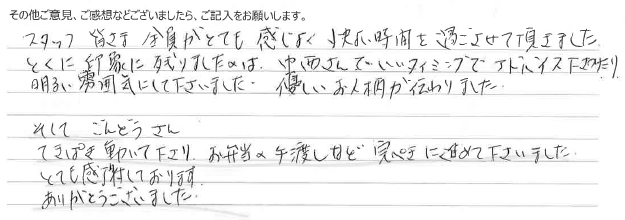 その他ご意見、ご感想などございましたら、ご記入をお願いします。
スタッフ 皆さま 全員がとても 感じよく 快い時間を 過ごさせて頂きました。
とくに 印象に 残りましたのは、中西さんでいいタイミングで アドバイス下さったり
明るい 雰囲気にして下さいました。 優しいお人柄が伝わりました。
そして ごんどうさん
てきぱき動いて下さり、お弁当の手渡しなど 完ぺきに進めて下さいました。
とても感謝しております。
ありがとうございました。